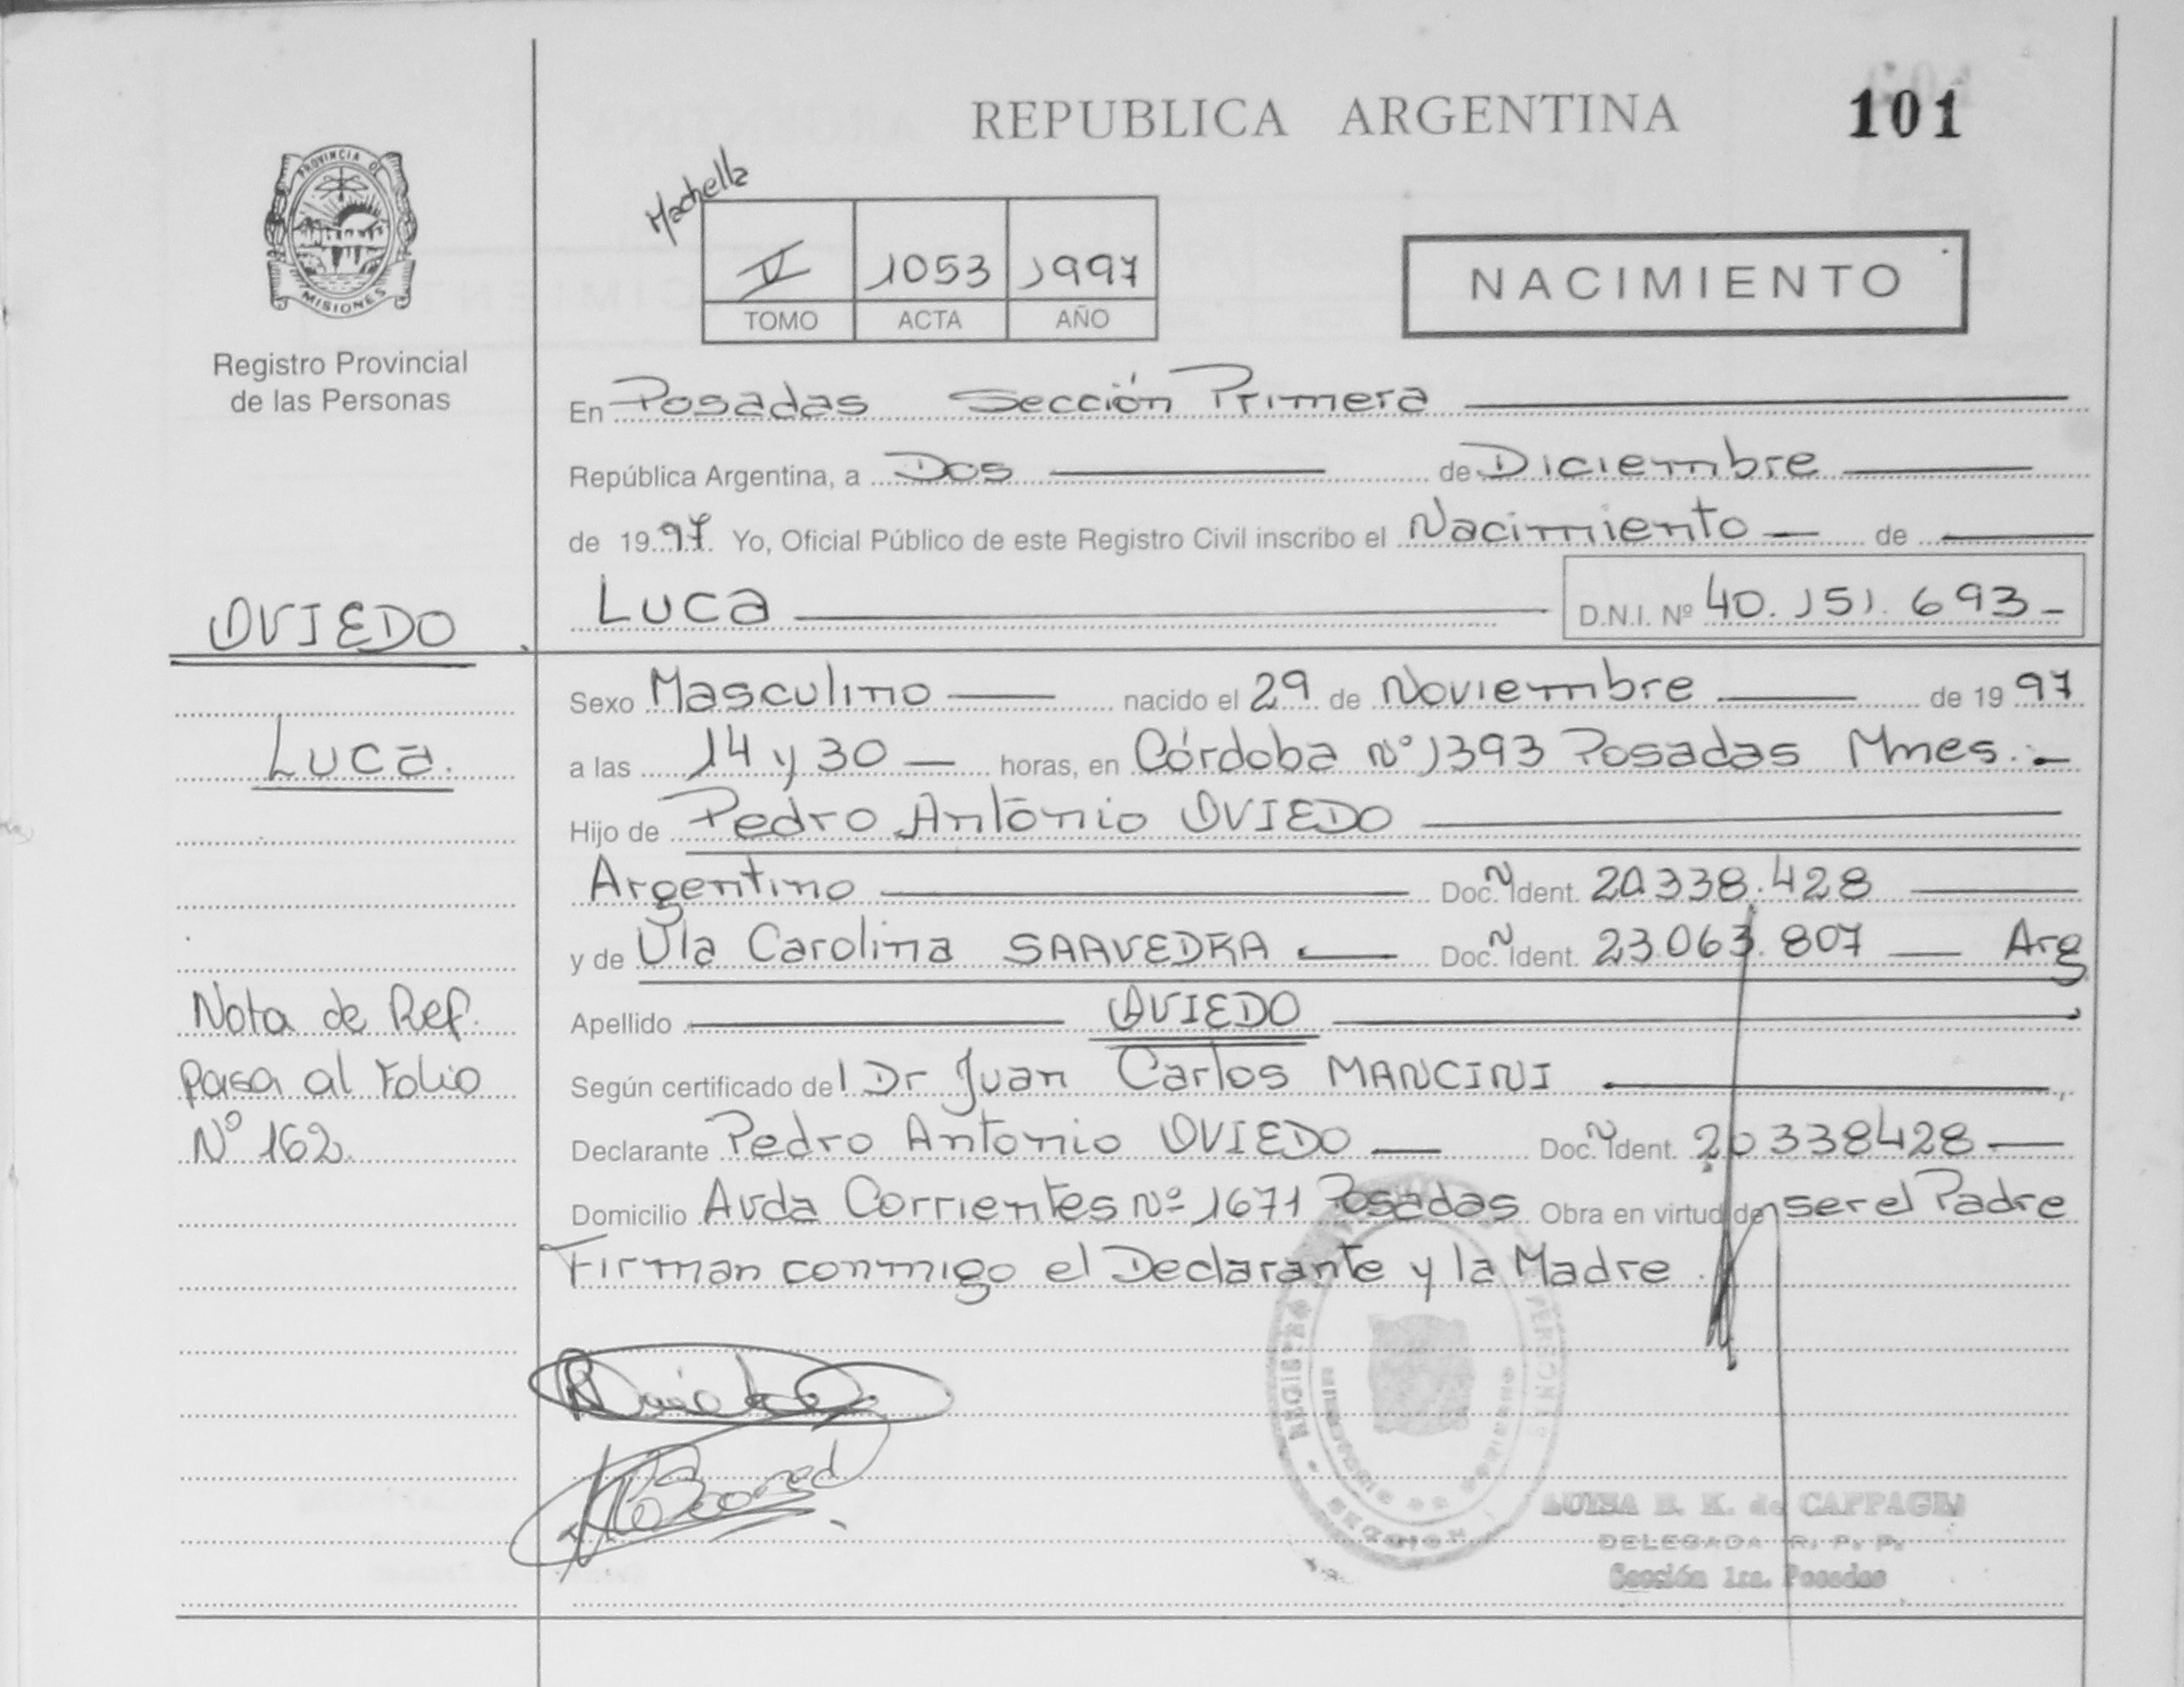 REPUBLICA ARGENTINA
101
PROVINCIA DE
MISIONES
Registro Provincial
de las Personas
Machella
V 1053 1997
TOMO ACTA AÑO
NACIMIENTO
En Posadas Sección Primera
República Argentina, a Dos de Diciembre
de 1997 Yo, Oficial Público de este Registro Civil inscribo el Nacimiento de
OVIEDO
Luca
D.N.I. Nº 40.151.693
Sexo Masculino nacido el 29 de Noviembre de 1997
Luca.
a las 14 y 30 horas, en Córdoba Nº 1393 Posadas Mnes.
Hijo de Pedro Antonio OVIEDO
Argentino Doc. N Ident. 20.338.428
y de Ula Carolina SAAVEDRA Doc. N Ident. 23.063.807 Arg
Nota de Ref.
Apellido OVIEDO
pasa al Folio
Según certificado del Dr Juan Carlos MANCINI
Nº 162.
Declarante Pedro Antonio OVIEDO Doc. N Ident. 20338428
Domicilio Avda Corrientes Nº 1671 Posadas Obra en virtud de ser el Padre
Firman conmigo el Declarante y la Madre.
DELEGADA R. P. P.
Sección 1ra. Posadas